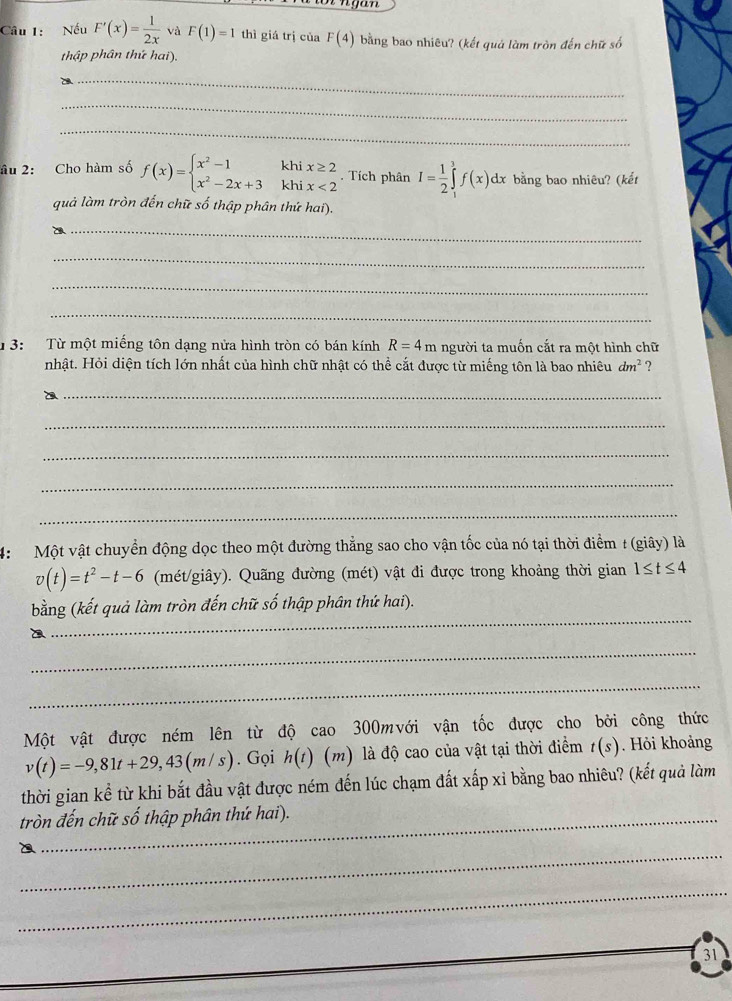 ngắn
Câu 1: Nếu F'(x) = 1/(2x) và F(1) = 1 thì giá trị của F(4) bằng bao nhiêu? (kết quả làm tròn đến chữ số
thập phân thứ hai).
âu 2: Cho hàm số f(x) = { x² − 1 khi x ≥ 2; x² − 2x + 3 khi x < 2 . Tích phân I = 1/2 ∫₁³ f(x)dx bằng bao nhiêu? (kết
quả làm tròn đến chữ số thập phân thứ hai).
3: Từ một miếng tôn dạng nửa hình tròn có bán kính R = 4 m người ta muốn cắt ra một hình chữ
nhật. Hỏi diện tích lớn nhất của hình chữ nhật có thể cắt được từ miếng tôn là bao nhiêu dm² ?
4: Một vật chuyển động dọc theo một đường thẳng sao cho vận tốc của nó tại thời điểm t (giây) là
v(t) = t² − t − 6 (mét/giây). Quãng đường (mét) vật đi được trong khoảng thời gian 1 ≤ t ≤ 4
bằng (kết quả làm tròn đến chữ số thập phân thứ hai).
Một vật được ném lên từ độ cao 300m với vận tốc được cho bởi công thức
v(t) = −9,81t + 29,43(m/s). Gọi h(t) (m) là độ cao của vật tại thời điểm t(s). Hỏi khoảng
thời gian kể từ khi bắt đầu vật được ném đến lúc chạm đất xấp xỉ bằng bao nhiêu? (kết quả làm
tròn đến chữ số thập phân thứ hai).
31